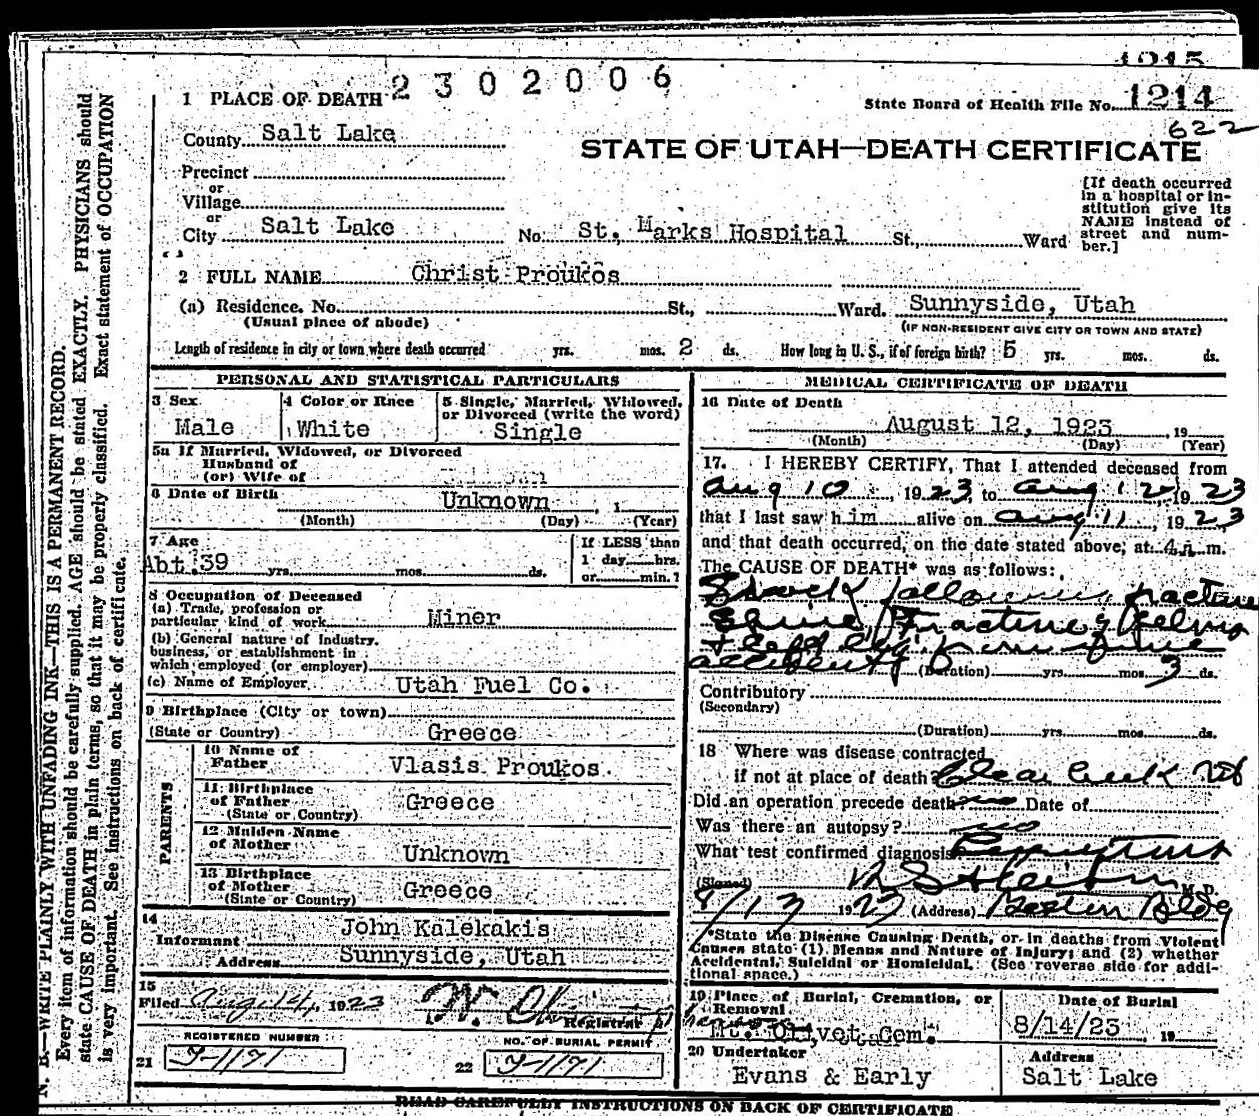 1215
2302006
State Board of Health File No. 1214
622
1 PLACE OF DEATH
County Salt Lake
STATE OF UTAH—DEATH CERTIFICATE
Precinct
or
Village
or
City Salt Lake No. St. Marks Hospital St., Ward
[If death occurred
in a hospital or in-
stitution give its
NAME instead of
street and num-
ber.]
2 FULL NAME Christ Proukos
(a) Residence. No. St., Ward. Sunnyside, Utah
(Usual place of abode) (IF NON-RESIDENT GIVE CITY OR TOWN AND STATE)
Length of residence in city or town where death occurred yrs. mos. 2 ds. How long in U. S., if of foreign birth? 5 yrs. mos. ds.
PERSONAL AND STATISTICAL PARTICULARS
3 Sex
Male
4 Color or Race
White
5 Single, Married, Widowed,
or Divorced (write the word)
Single
5a If Married, Widowed, or Divorced
Husband of
(or) Wife of
6 Date of Birth Unknown, 1
(Month) (Day) (Year)
7 Age
Abt. 39 yrs. mos. ds.
If LESS than
1 day hrs.
or min.?
8 Occupation of Deceased
(a) Trade, profession or
particular kind of work Miner
(b) General nature of Industry,
business, or establishment in
which employed (or employer)
(c) Name of Employer Utah Fuel Co.
9 Birthplace (City or town)
(State or Country) Greece
PARENTS
10 Name of
Father Vlasis Proukos
11 Birthplace
of Father Greece
(State or Country)
12 Maiden Name
of Mother Unknown
13 Birthplace
of Mother Greece
(State or Country)
14
Informant John Kalekakis
Address Sunnyside, Utah
15
Filed Aug 14, 1923
Registrar
REGISTERED NUMBER
21 J-1171
NO. OF BURIAL PERMIT
22 J-1171
MEDICAL CERTIFICATE OF DEATH
16 Date of Death
August 12, 1923, 19
(Month) (Day) (Year)
17. I HEREBY CERTIFY, That I attended deceased from
Aug 10, 1923, to Aug 12, 1923
that I last saw him alive on Aug 11, 1923
and that death occurred, on the date stated above, at 4 a.m.
The CAUSE OF DEATH* was as follows:
Shock following fracture
Spine, Fracture Pelvis
+ left leg from mine
accident
(Duration) yrs. mos. 3 ds.
Contributory
(Secondary)
(Duration) yrs. mos. ds.
18 Where was disease contracted
if not at place of death? Clear Creek Ut
Did an operation precede death? no Date of
Was there an autopsy? no
What test confirmed diagnosis?
(Signed) M. D.
8/13 1923 (Address) Boston Bldg
*State the Disease Causing Death, or in deaths from Violent
Causes state (1) Means and Nature of Injury; and (2) whether
Accidental, Suicidal or Homicidal. (See reverse side for addi-
tional space.)
19 Place of Burial, Cremation, or
Removal
Mt. Olivet Cem.
Date of Burial
8/14/23 19
20 Undertaker
Evans & Early
Address
Salt Lake
READ CAREFULLY INSTRUCTIONS ON BACK OF CERTIFICATE
N. B.—WRITE PLAINLY WITH UNFADING INK—THIS IS A PERMANENT RECORD.
Every item of information should be carefully supplied. AGE should be stated EXACTLY. PHYSICIANS should
state CAUSE OF DEATH in plain terms, so that it may be properly classified. Exact statement of OCCUPATION
is very important. See instructions on back of certificate.